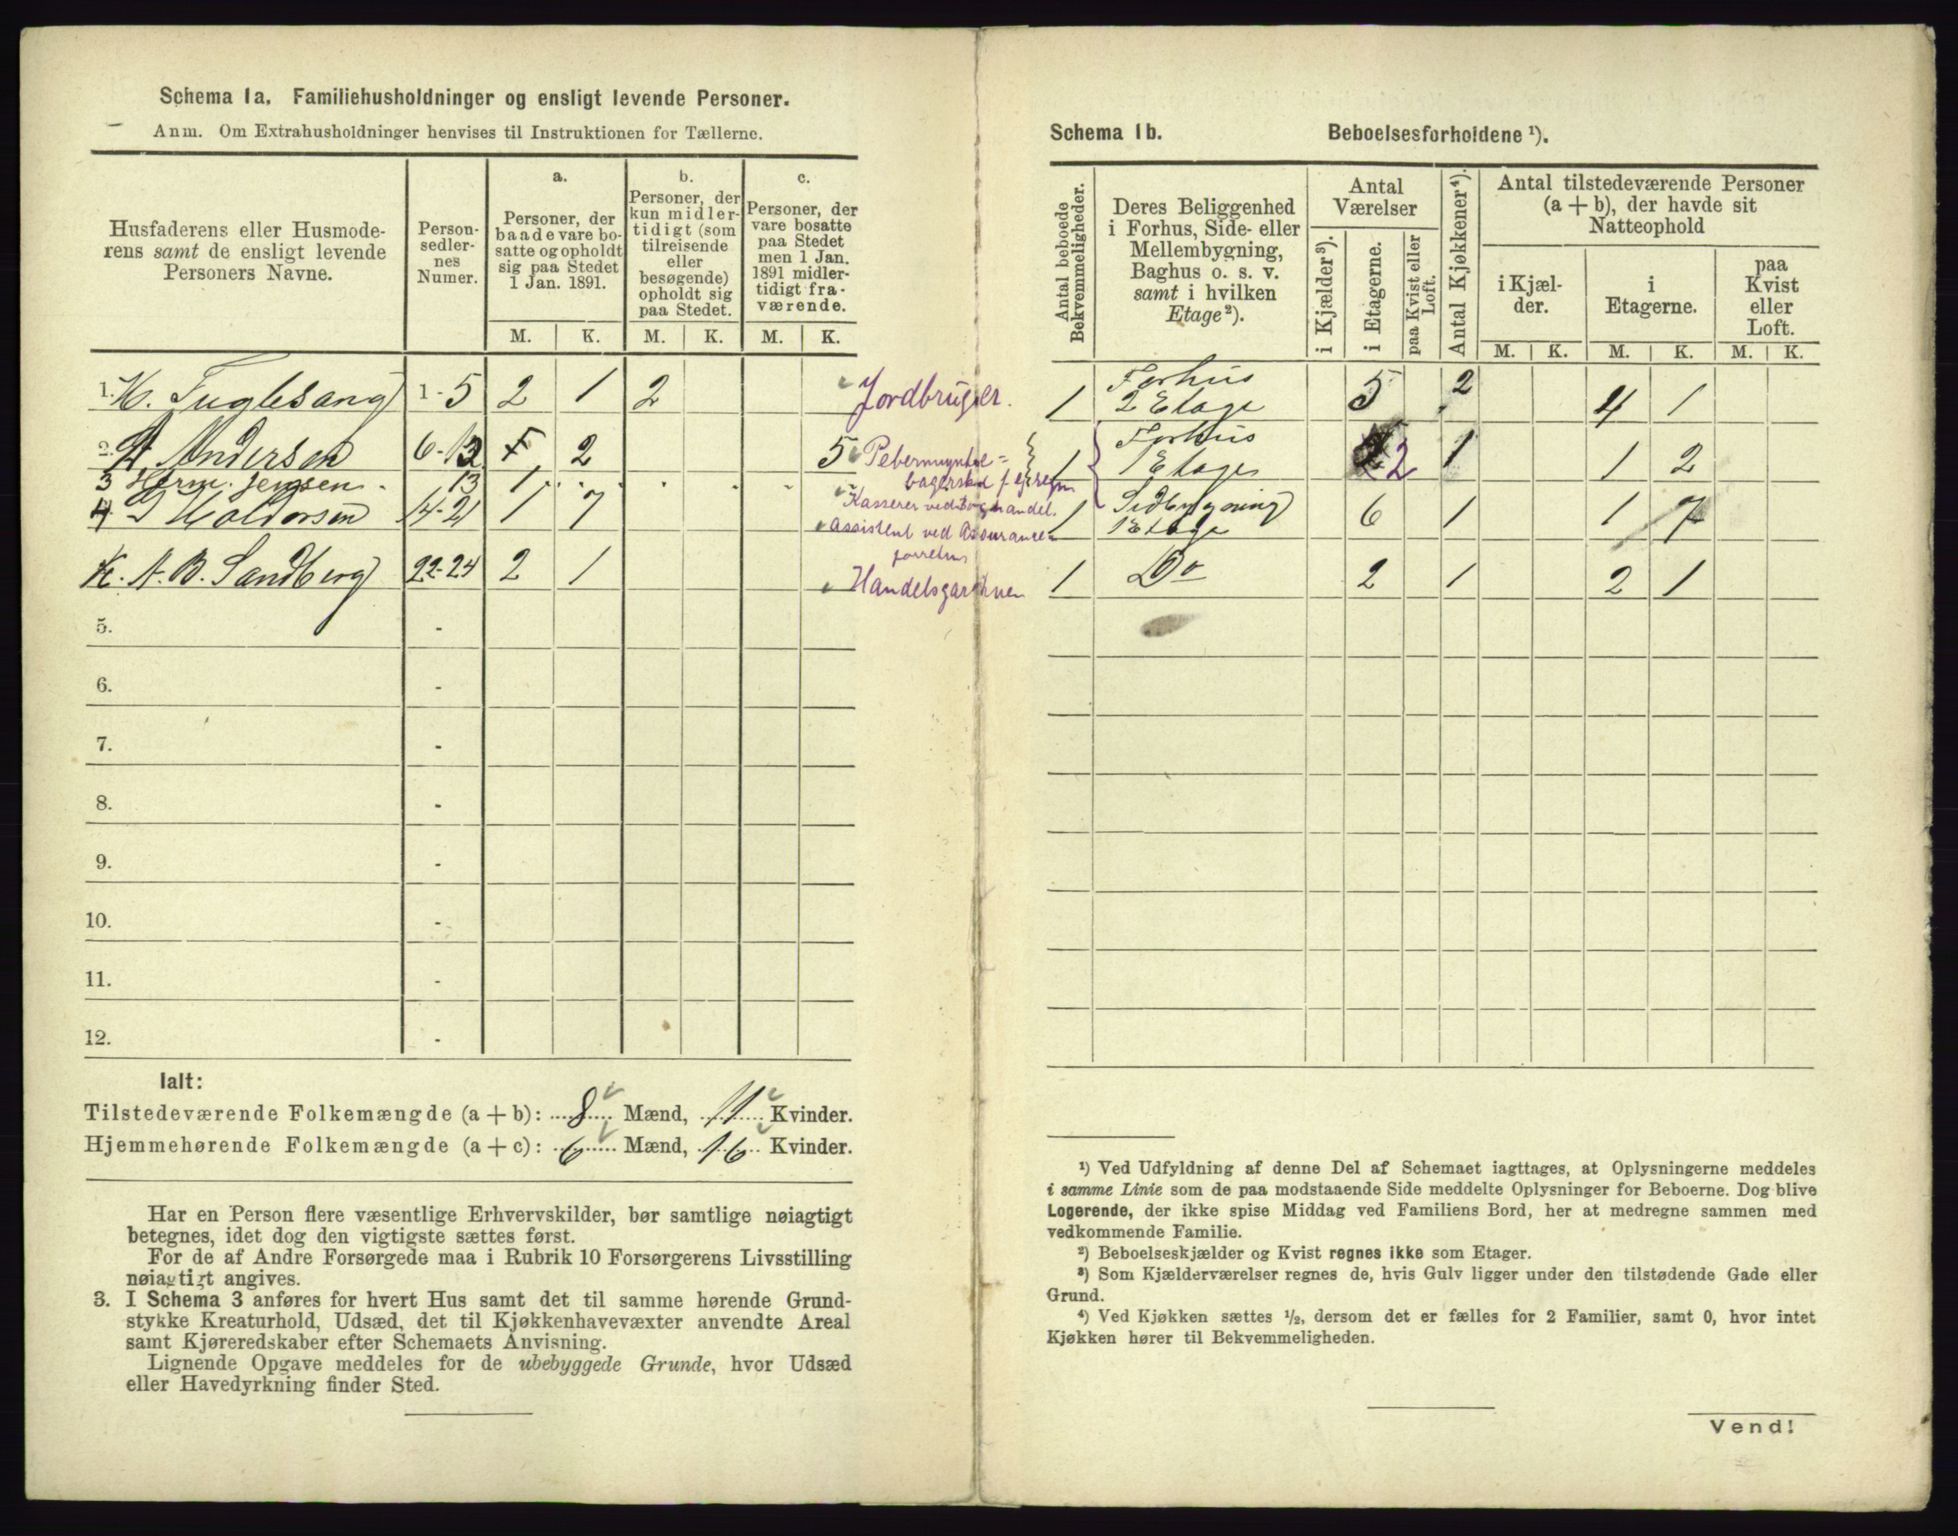 Schema 1a. Familiehusholdninger og ensligt levende Personer.
Anm. Om Extrahusholdninger henvises til Instruktionen for Tællerne.
Husfaderens eller Husmode-
rens samt de ensligt levende
Personers Navne.
Person-
sedler-
nes
Numer.
a.
Personer, der
baade vare bo-
satte og opholdt
sig paa Stedet
1 Jan. 1891.
b.
Personer, der
kun midler-
tidigt (som
tilreisende
eller
besøgende)
opholdt sig
paa Stedet.
c.
Personer, der
vare bosatte
paa Stedet
men 1 Jan.
1891 midler-
tidigt fra-
værende.
M. K. M. K. M. K.
1. H. Fuglesang 1-5 2 1 2 Jordbruger.
2. A. Andersen 6-12 2 5 Pebermynte=
3 Herm. Jensen. 13 1
4. Haldorsen 14-21 1 7 Kasserer ved
Assistent ved Assurance=
K. A. B. Sandberg 22-24 2 1 Handelsgartner
5. -
6. -
7. -
8. -
9. -
10. -
11. -
12. -
Ialt:
Tilstedeværende Folkemængde (a + b): 8 Mænd, 11 Kvinder.
Hjemmehørende Folkemængde (a + c): 6 Mænd, 16 Kvinder.
Har en Person flere væsentlige Erhvervskilder, bør samtlige nøiagtigt
betegnes, idet dog den vigtigste sættes først.
For de af Andre Forsørgede maa i Rubrik 10 Forsørgerens Livsstilling
nøiagtigt angives.
3. I Schema 3 anføres for hvert Hus samt det til samme hørende Grund-
stykke Kreaturhold, Udsæd, det til Kjøkkenhavevæxter anvendte Areal
samt Kjøreredskaber efter Schemaets Anvisning.
Lignende Opgave meddeles for de ubebyggede Grunde, hvor Udsæd
eller Havedyrkning finder Sted.
Schema 1b. Beboelsesforholdene ¹).
Antal beboede
Bekvemmeligheder.
Deres Beliggenhed
i Forhus, Side- eller
Mellembygning,
Baghus o. s. v.
samt i hvilken
Etage²).
Antal
Værelser
i Kjælder³).
i Etagerne.
paa Kvist eller
Loft.
Antal Kjøkkener⁴).
Antal tilstedeværende Personer
(a + b), der havde sit
Natteophold
i Kjæl-
der.
i
Etagerne.
paa
Kvist
eller
Loft.
M. K. M. K. M. K.
1 Forhus
2 Etage 5 2 4 1
1 Forhus
1 Etage 2 1 1 2
1 Sidbygning
1 Etage 6 1 1 7
1 Do 2 1 2 1
¹) Ved Udfyldning af denne Del af Schemaet iagttages, at Oplysningerne meddeles
i samme Linie som de paa modstaaende Side meddelte Oplysninger for Beboerne. Dog blive
Logerende, der ikke spise Middag ved Familiens Bord, her at medregne sammen med
vedkommende Familie.
²) Beboelseskjælder og Kvist regnes ikke som Etager.
³) Som Kjælderværelser regnes de, hvis Gulv ligger under den tilstødende Gade eller
Grund.
⁴) Ved Kjøkken sættes ½, dersom det er fælles for 2 Familier, samt 0, hvor intet
Kjøkken hører til Bekvemmeligheden.
Vend!